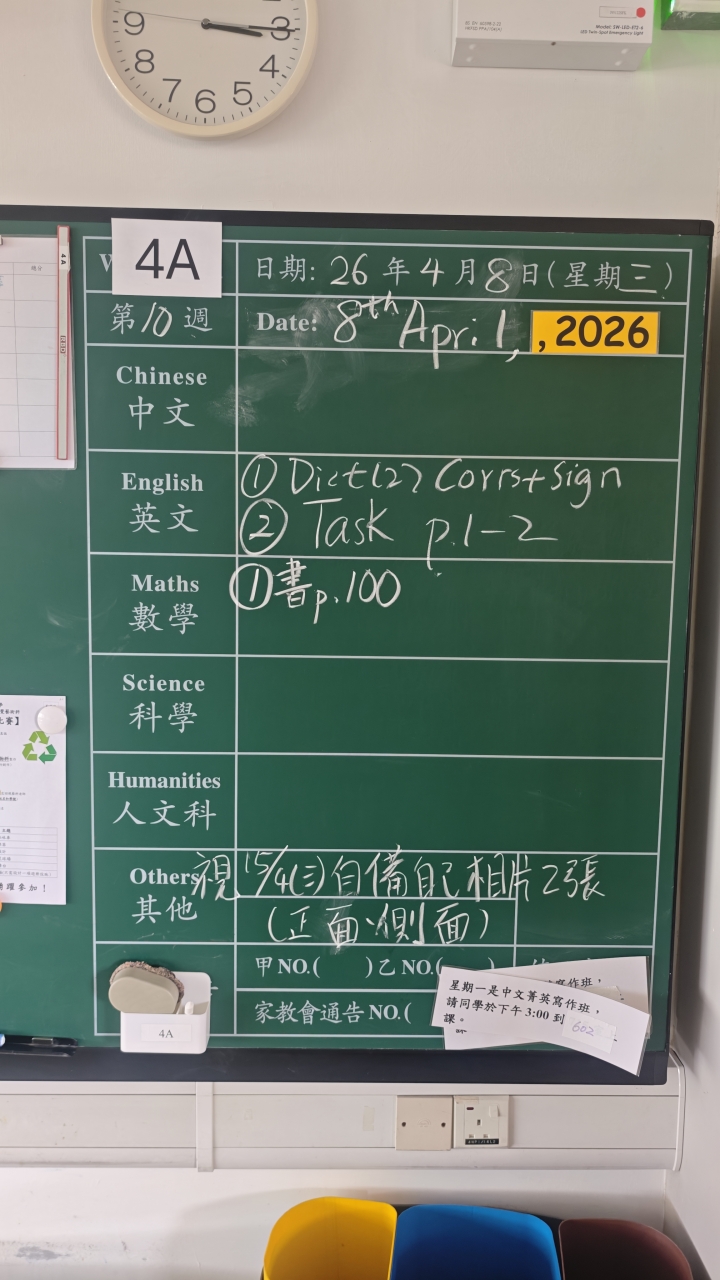 9
3
8
4
7
6
5
4A
日期: 26 年 4 月 8 日 (星期三)
第 10 週
Date: 8th April, , 2026
Chinese
中文
English
英文
① Dict(2) Corrs + Sign
② Task p.1-2
Maths
數學
① 書 p.100
Science
科學
Humanities
人文科
Others
其他
視 15/4(三) 自備自己相片2張
(正面、側面)
甲 NO.( ) 乙 NO.( )
家教會通告 NO.(
4A
星期一是中文菁英寫作班，
請同學於下午 3:00 到 602
課。
4A
比賽】
踴躍參加！